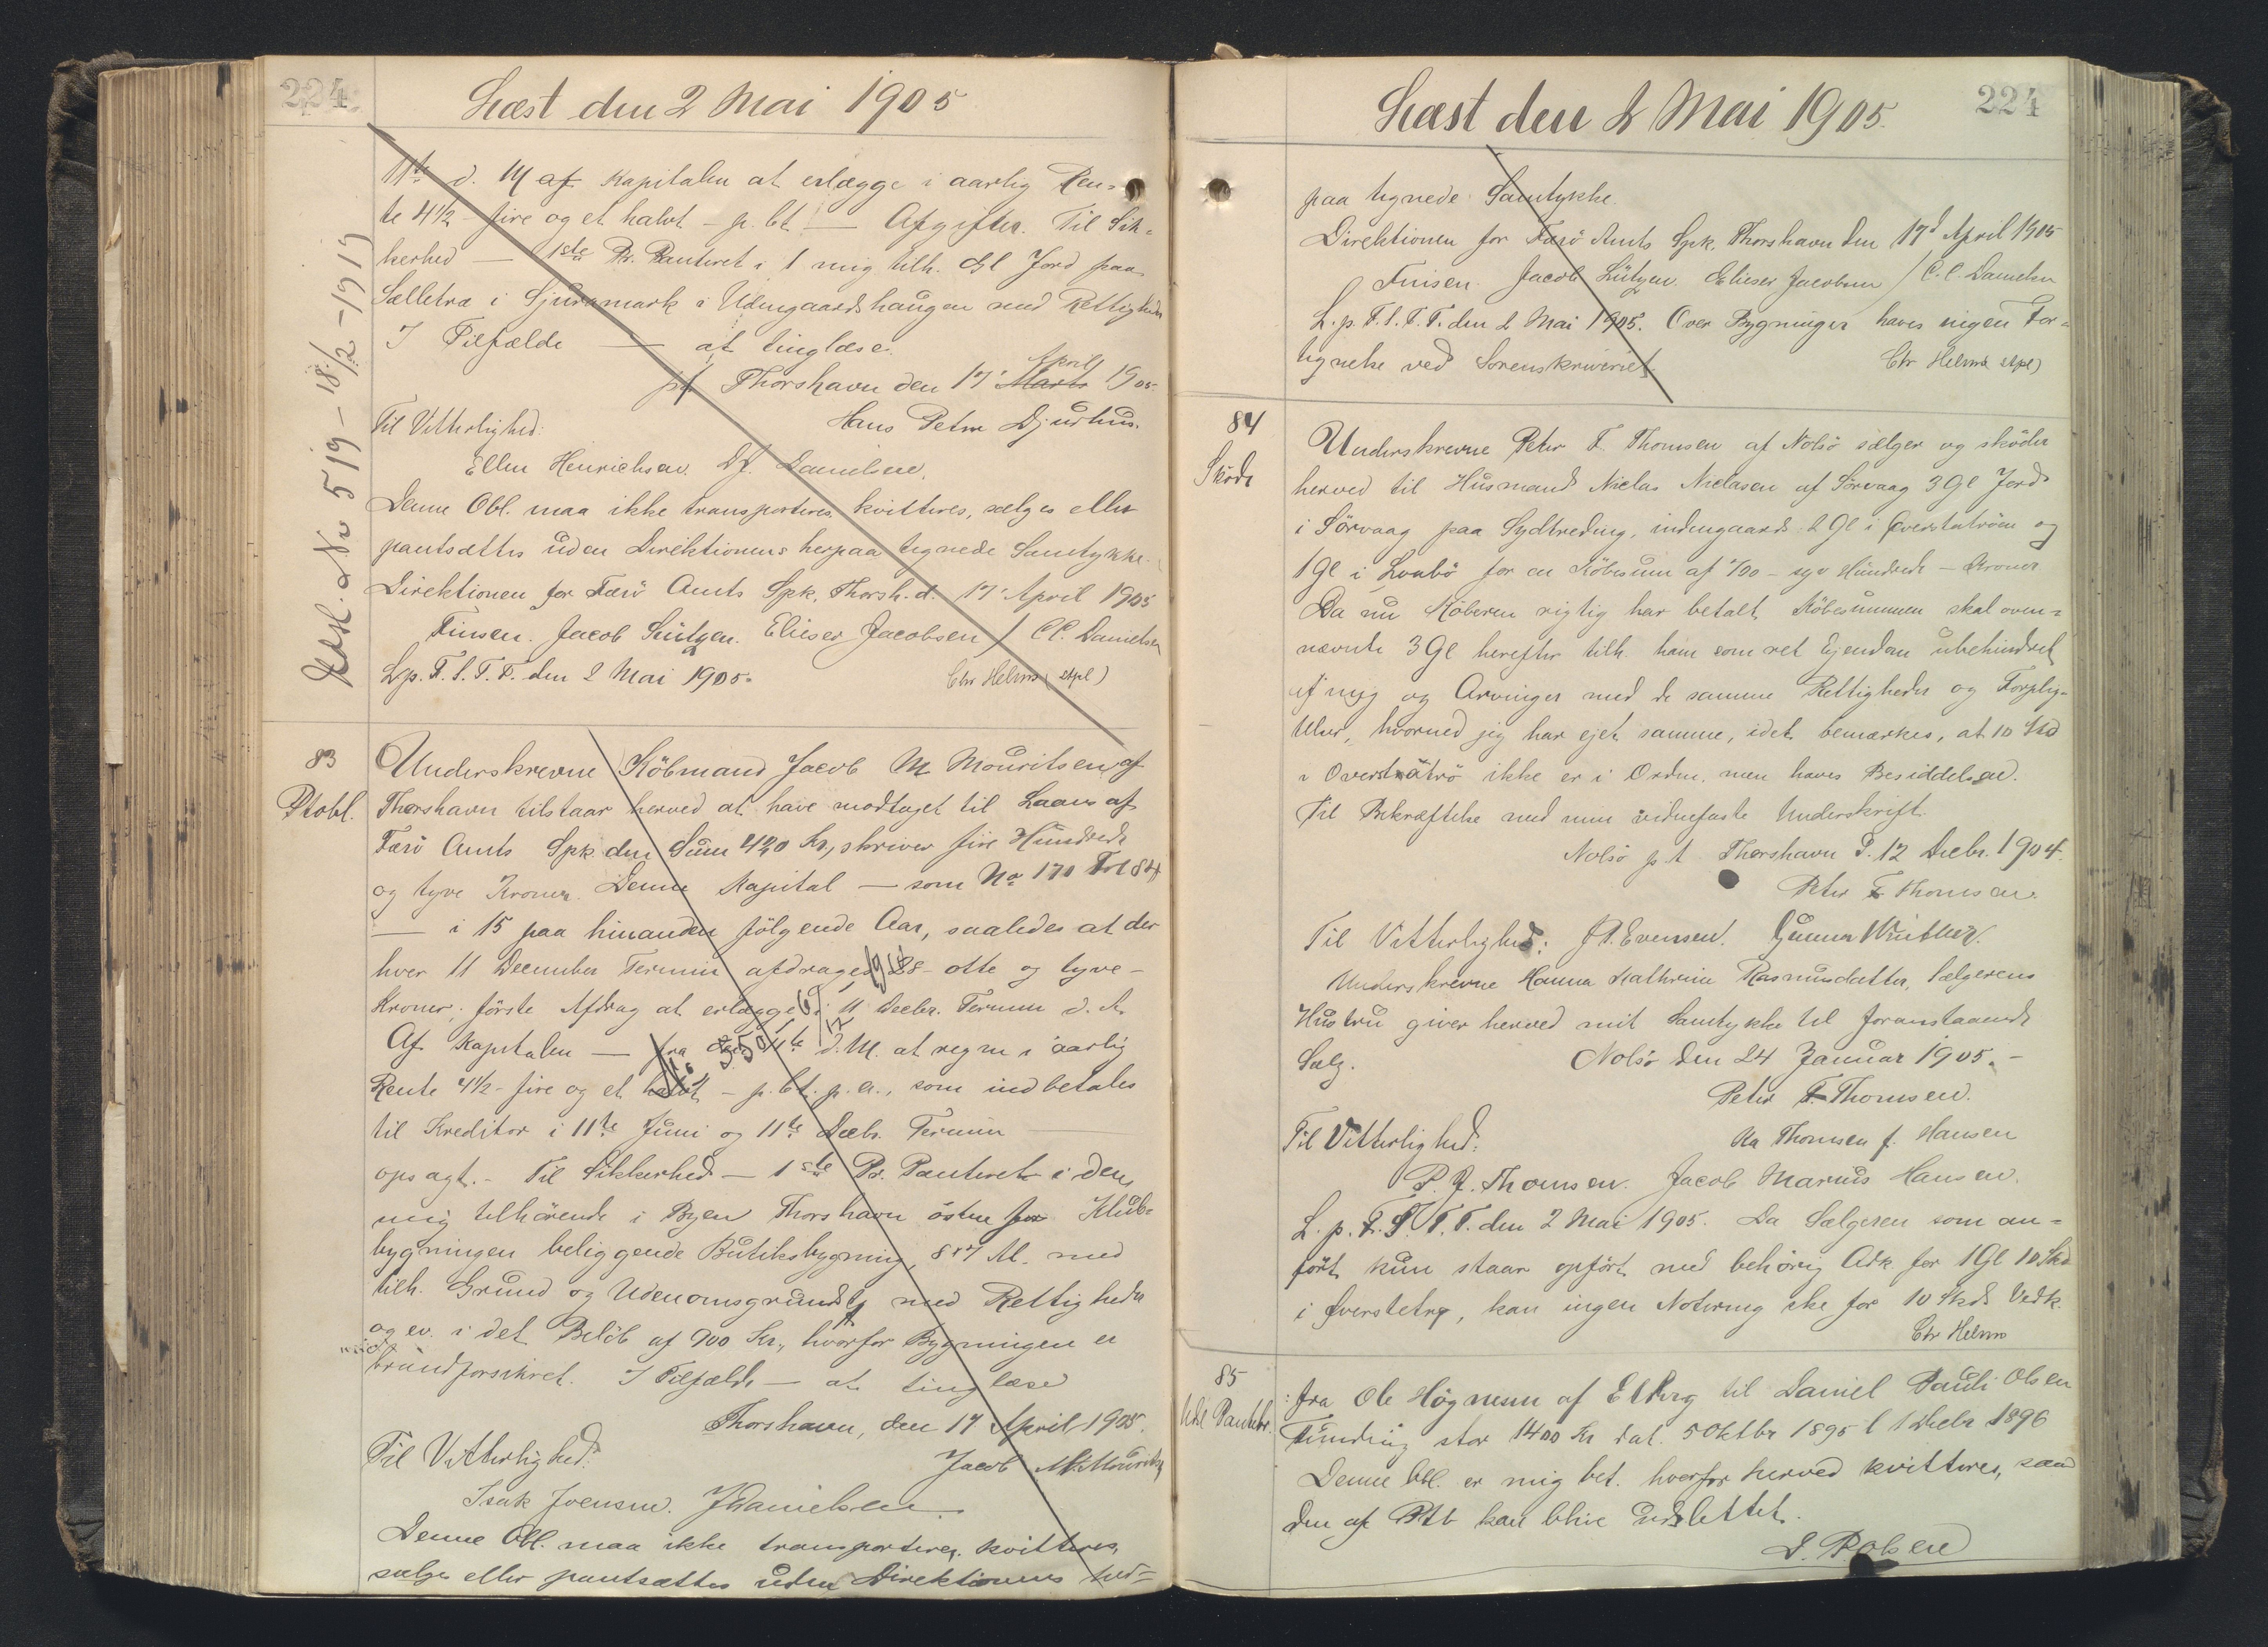 224
Læst den 2 Mai 1905
11te d. M af Kapitalen at erlægge i aarlig Ren-
te 4 1/2 - fire og et halvt - p. Ct. — Afgifter. Til Sik-
kerhed — 1ste Pr. Panteret i 1 mig tilh. Gl Jord paa
Sælletræ i Sjurdmark i Udengaardshaugen med Rettigheder
I Tilfælde — at tinglæse.
p.t. Thorshavn den 17' Marts April 1905.
Til Vitterlighed: Hans Petur Djurhus.
Ellen Henrichsen. Dj. Danielsen.
Denne Obl. maa ikke transporteres, kvitteres, sælges eller
pantsættes uden Direktionens herpaa tegnede Samtykke.
Direktionen for Færö Amts Spk, Thorsh. d. 17' April 1905
Finsen. Jacob Lützen. Elieser Jacobsen / C.C. Danielsen
L. p. F. S. T. P. den 2 Mai 1905. Chr Helms (stpl)
Udsl. No 519 - 18/12 - 1919
83
Ptobl.
Underskrevne Köbmand Jacob M Mouritsen af
Thorshavn tilstaar herved at have modtaget til Laans af
Færö Amts Spk. den Sum 420 Kr, skriver fire Hundrede
og tyve Kroner. Denne Kapital — som No 170 Fol 84
— i 15 paa hinanden fölgende Aar, saaledes at der
hver 11 December Termin afdrages 28 - otte og tyve -
Kroner; förste Afdrag at erlægge i 11 Decbr. Termin d. A.
Af Kapitalen — fra den 11te d. M. at regne i aarlig
Rente 4 1/2 - fire og et halvt - p. Ct. p. a., som indbetales
til Kreditor i 11te Juni og 11te Decbr. Termin —
opsagt. - Til Sikkerhed — 1ste Pr. Panteret i den
mig tilhörende i Byen Thorshavn östen for Klub-
bygningen beliggende Butiksbygning, 8x7 Al. med
tilh. Grund og Udenomsgrund og med Rettigheder
og ev. i det Belöb af 900 Kr., hvorfor Bygningen er
brandforsikret. I Tilfælde — at tinglæse
Thorshavn, den 17 April 1905.
Til Vitterlighed: Jacob M. Mouritsen
Isak Joensen. J Danielsen.
Denne Obl. maa ikke transporteres, kvitteres,
sælges eller pantsættes uden Direktionens her=
224
Læst den 2 Mai 1905.
paa tegnede Samtykke.
Direktionen for Færö Amts Spk. Thorshavn den 17d April 1905
Finsen. Jacob Lützen. Elieser Jacobsen / C. C. Danielsen
L. p. F. S. T. T. den 2 Mai 1905. Over Bygninger haves ingen For-
tegnelse ved Sorenskriveriet. Chr Helms stpl)
84
Sköde
Underskrevne Peter F. Thomsen af Nolsö sælger og sköder
herved til Husmand Niclas Niclasen af Sörvaag 3 Gl Jord
i Sörvaag paa Sydtreding, indengaards 2 Gl i Överstatröen og
1 Gl i Lonbö for en Köbesum af 700 - syv Hundrede - Kroner
Da nu Köberen rigtig har betalt Köbesummen skal oven-
nævnte 3 Gl herefter tilh. ham som ret Ejendom ubehindret
af mig og Arvinger med de samme Rettigheder og Forplig-
telser, hvormed jeg har ejet samme, idet bemærkes, at 10 Skd
i Overstatrö ikke er i Orden, men haves Besiddelsen.
Til Bekræftelse med min vidnefaste Underskrift.
Nolsö p. t. Thorshavn d. 12 Decbr. 1904.
Peter F Thomsen.
Til Vitterlighed: J P. Evensen. Gunnar Winther.
Underskrevne Hanna Kathrina Rasmusdatter, Sælgerens
Hustru giver herved mit Samtykke til foranstaaende
Salg. Nolsö den 24 Januar 1905. -
Peter F. Thomsen.
Til Vitterlighed: Ka Thomsen f. Hansen
P. J. Thomsen. Jacob Marius Hansen.
L. p. F. S. T. T. den 2 Mai 1905. Da Sælgeren som an-
fört kun staar opfört med behörig Adk. for 1 Gl 10 Skd
i Överstetrö, kan ingen Notering ske for 10 Skds Vedk.
Chr Helms
85
Udsl Pantebr.
: fra Ole Högnesen af Elberg til Daniel Pauli Olsen
Funding stor 1400 Kr dat. 5 Oktbr 1895 l 1 Decbr 1896
Denne Obl. er mig bet. hvorfor herved kvitteres, saa
den af Ptb kan blive udslettet.
D. P Olsen